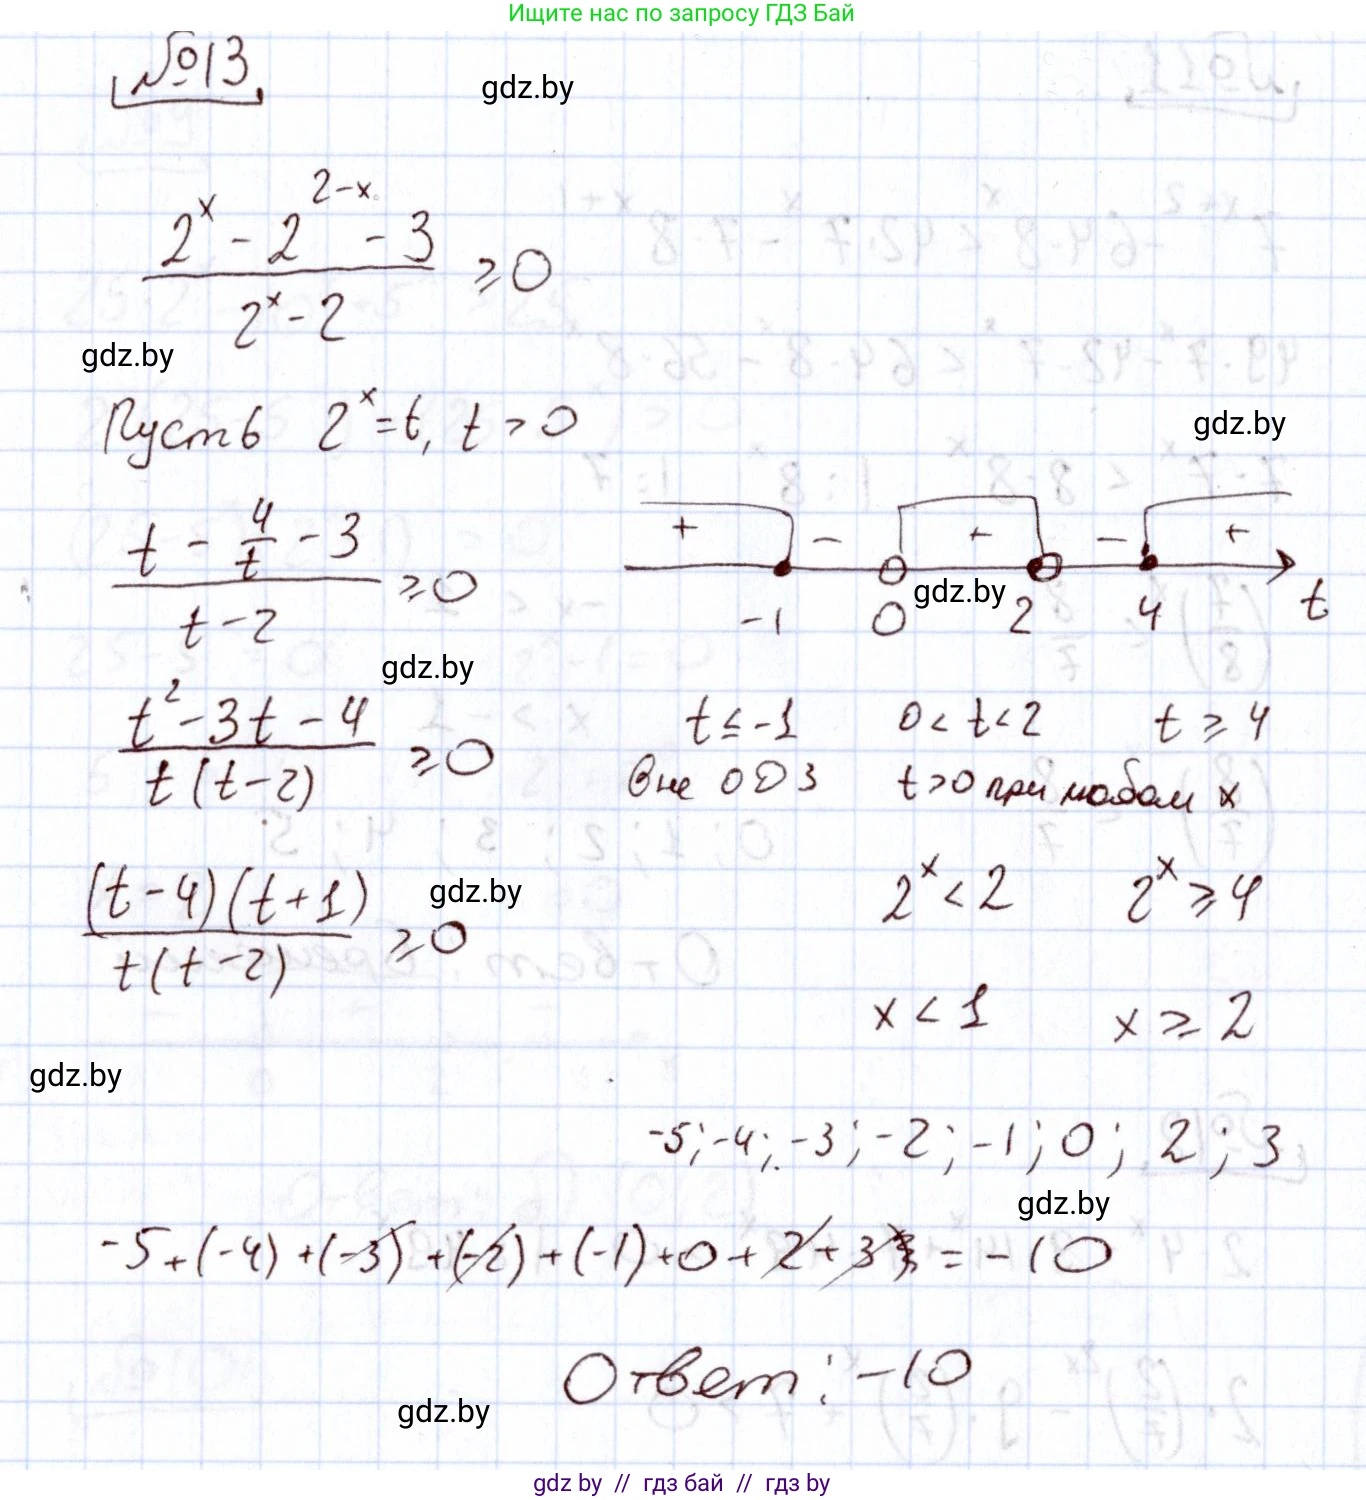 Ищите нас по запросу ГДЗ Бай
№13
gdz.by
(2^x - 2^(2-x) - 3) / (2^x - 2) ≥ 0
gdz.by
Пусть 2^x = t, t > 0
gdz.by
(t - 4/t - 3) / (t - 2) ≥ 0
+ - + - +
-1 0 2 4 t
gdz.by
gdz.by
(t^2 - 3t - 4) / (t(t-2)) ≥ 0
t ≤ -1 0 < t < 2 t ≥ 4
вне ОДЗ t>0 при любом x
((t-4)(t+1)) / (t(t-2)) ≥ 0
gdz.by
2^x < 2 2^x ≥ 4
x < 1 x ≥ 2
gdz.by
-5; -4; -3; -2; -1; 0; 2; 3
gdz.by
-5+(-4)+(-3)+(-2)+(-1)+0+2+3 = -10
Ответ: -10
gdz.by
gdz by // гдз бай // гдз by